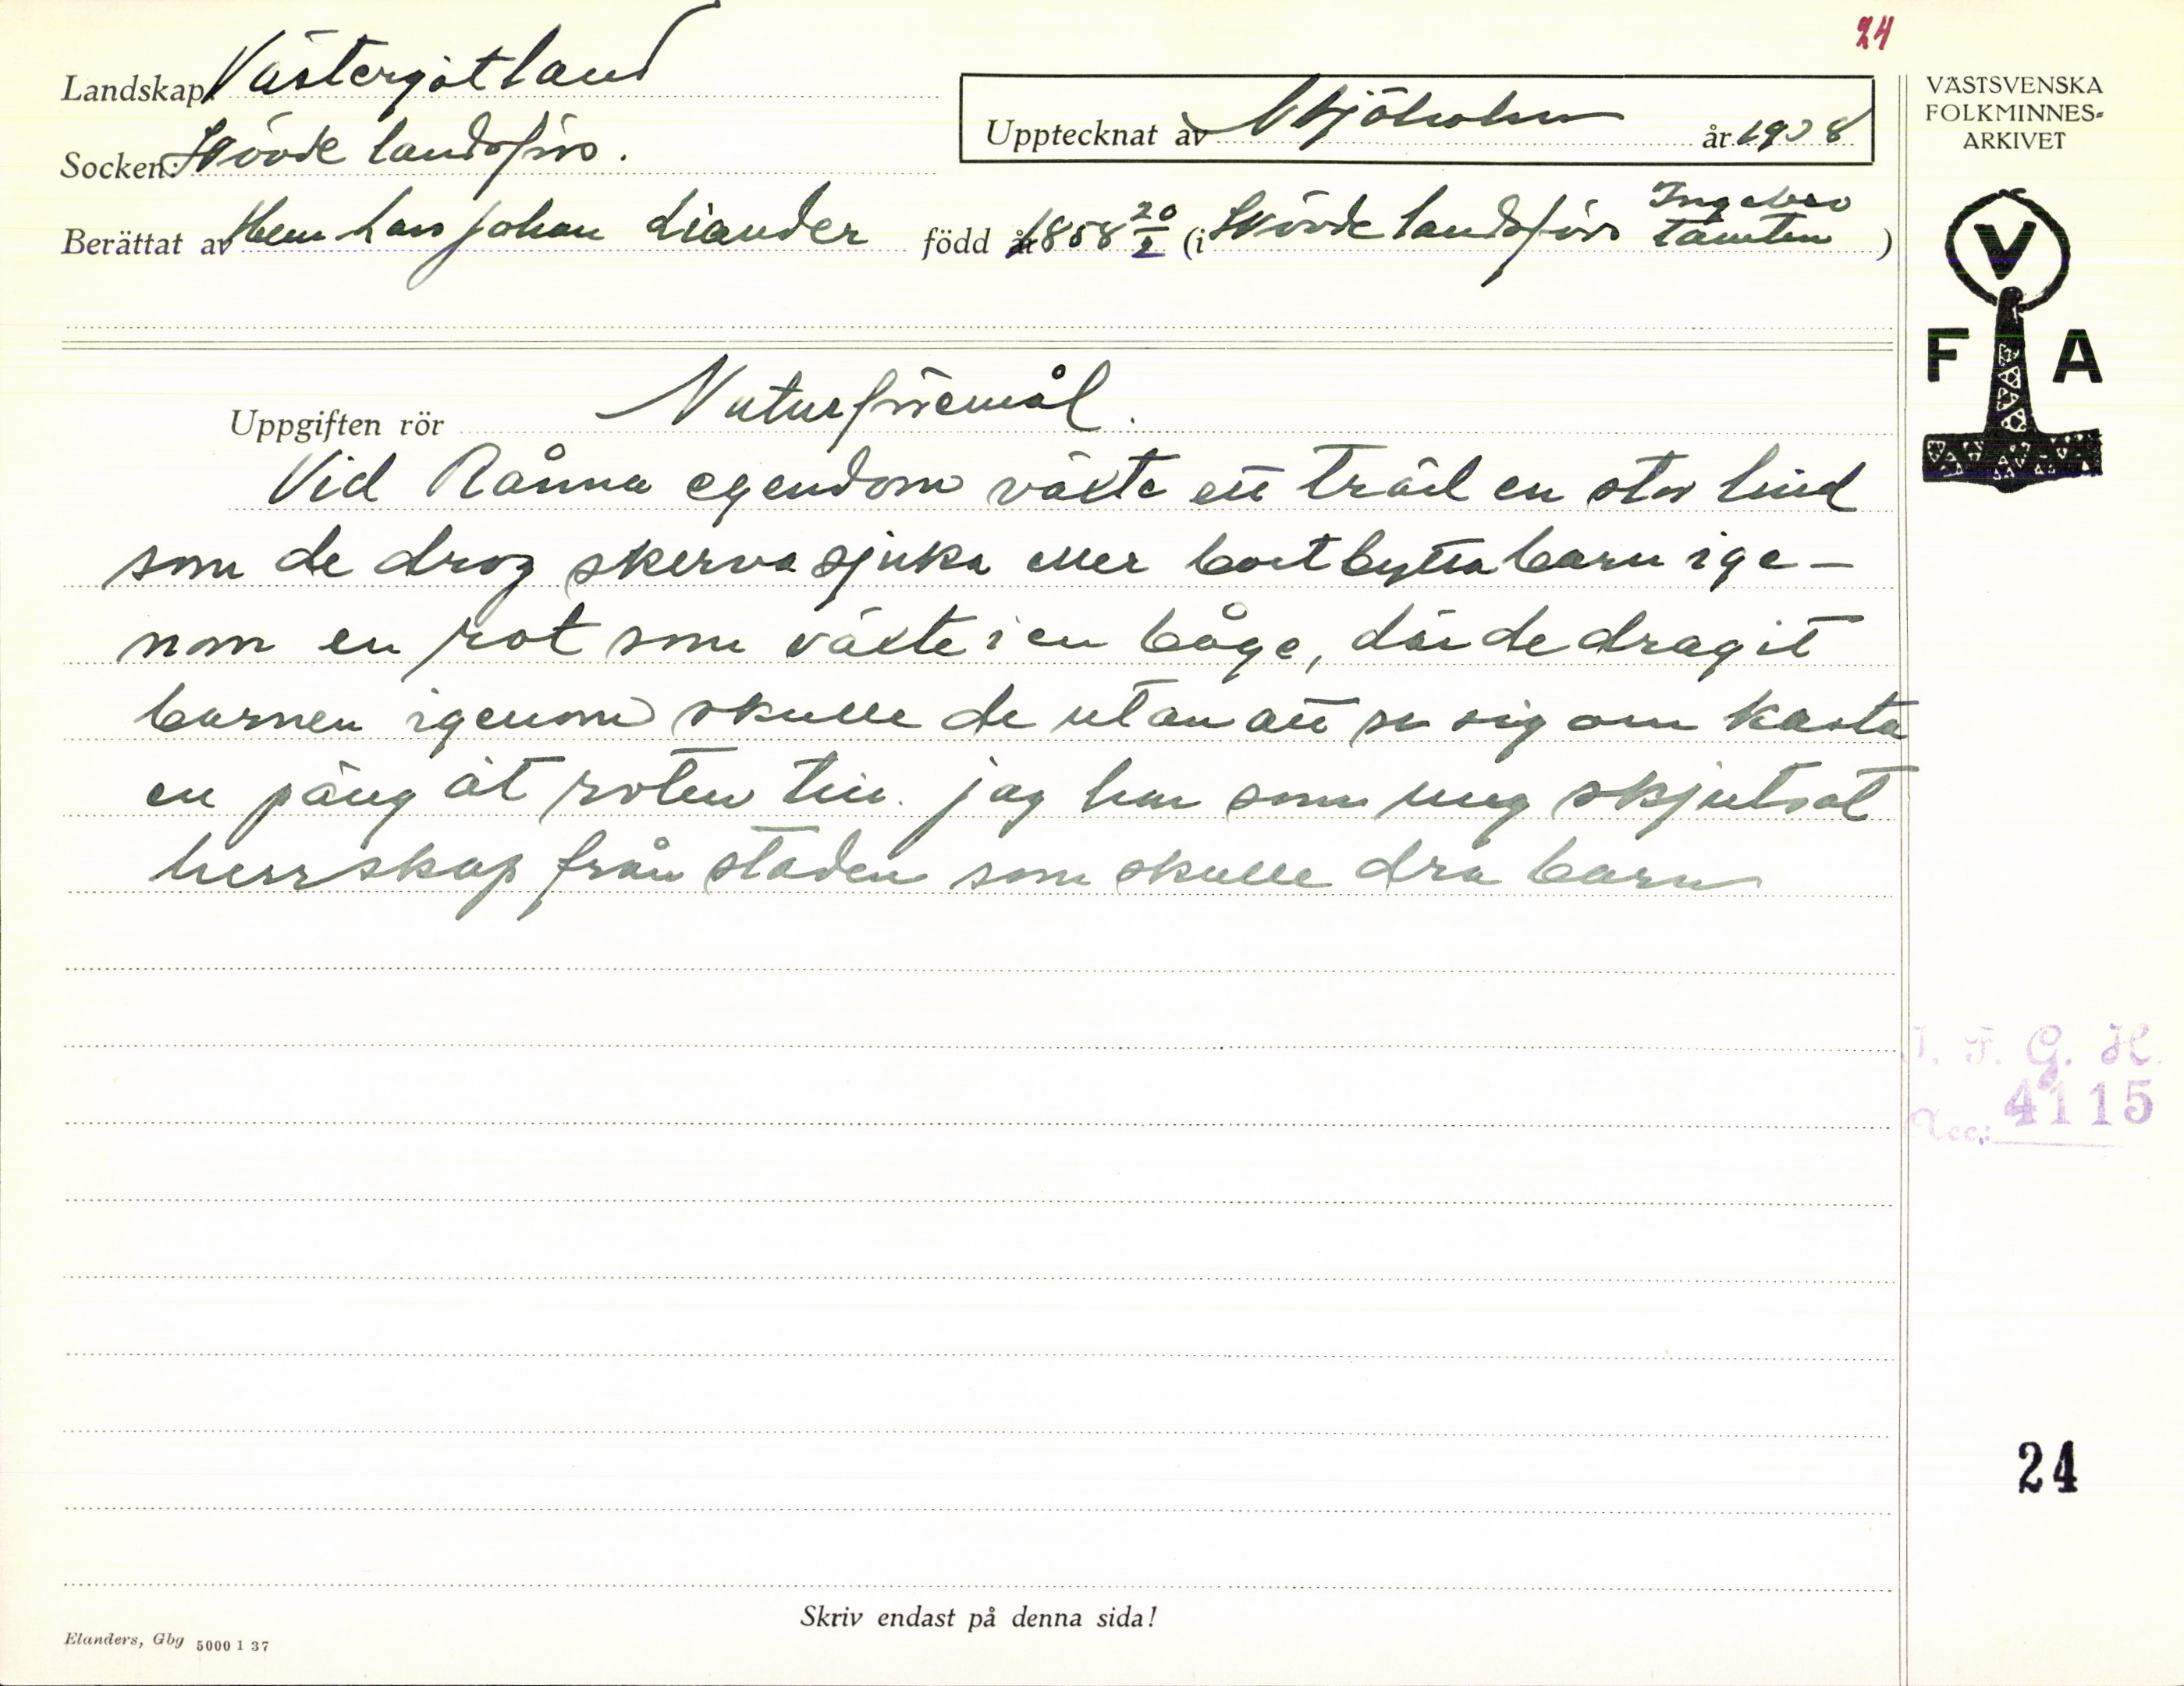 24
Landskap: Västergötland
Upptecknat av år 1938
Socken: Skövde landsförs.
Berättat av Lars Johan Liander född år 1858 20/2 (i Skövde landsförs Ingebro)
Uppgiften rör Naturföremål.
Vid Rånna egendom växte ett träd en stor lind
som de drog skerva sjuka eller bortbytta barn ige-
nom en rot som växte i en båge, där de dragit
barnen igenom skulle de utan att se sig om kasta
en päng åt roten till. jag har som ung skjutsat
herrskap från staden som skulle dra barn
Skriv endast på denna sida!
Elanders, Gbg 5000 1 37
VÄSTSVENSKA
FOLKMINNES-
ARKIVET
V
F A
I. F. G. H.
Acc.: 4115
24